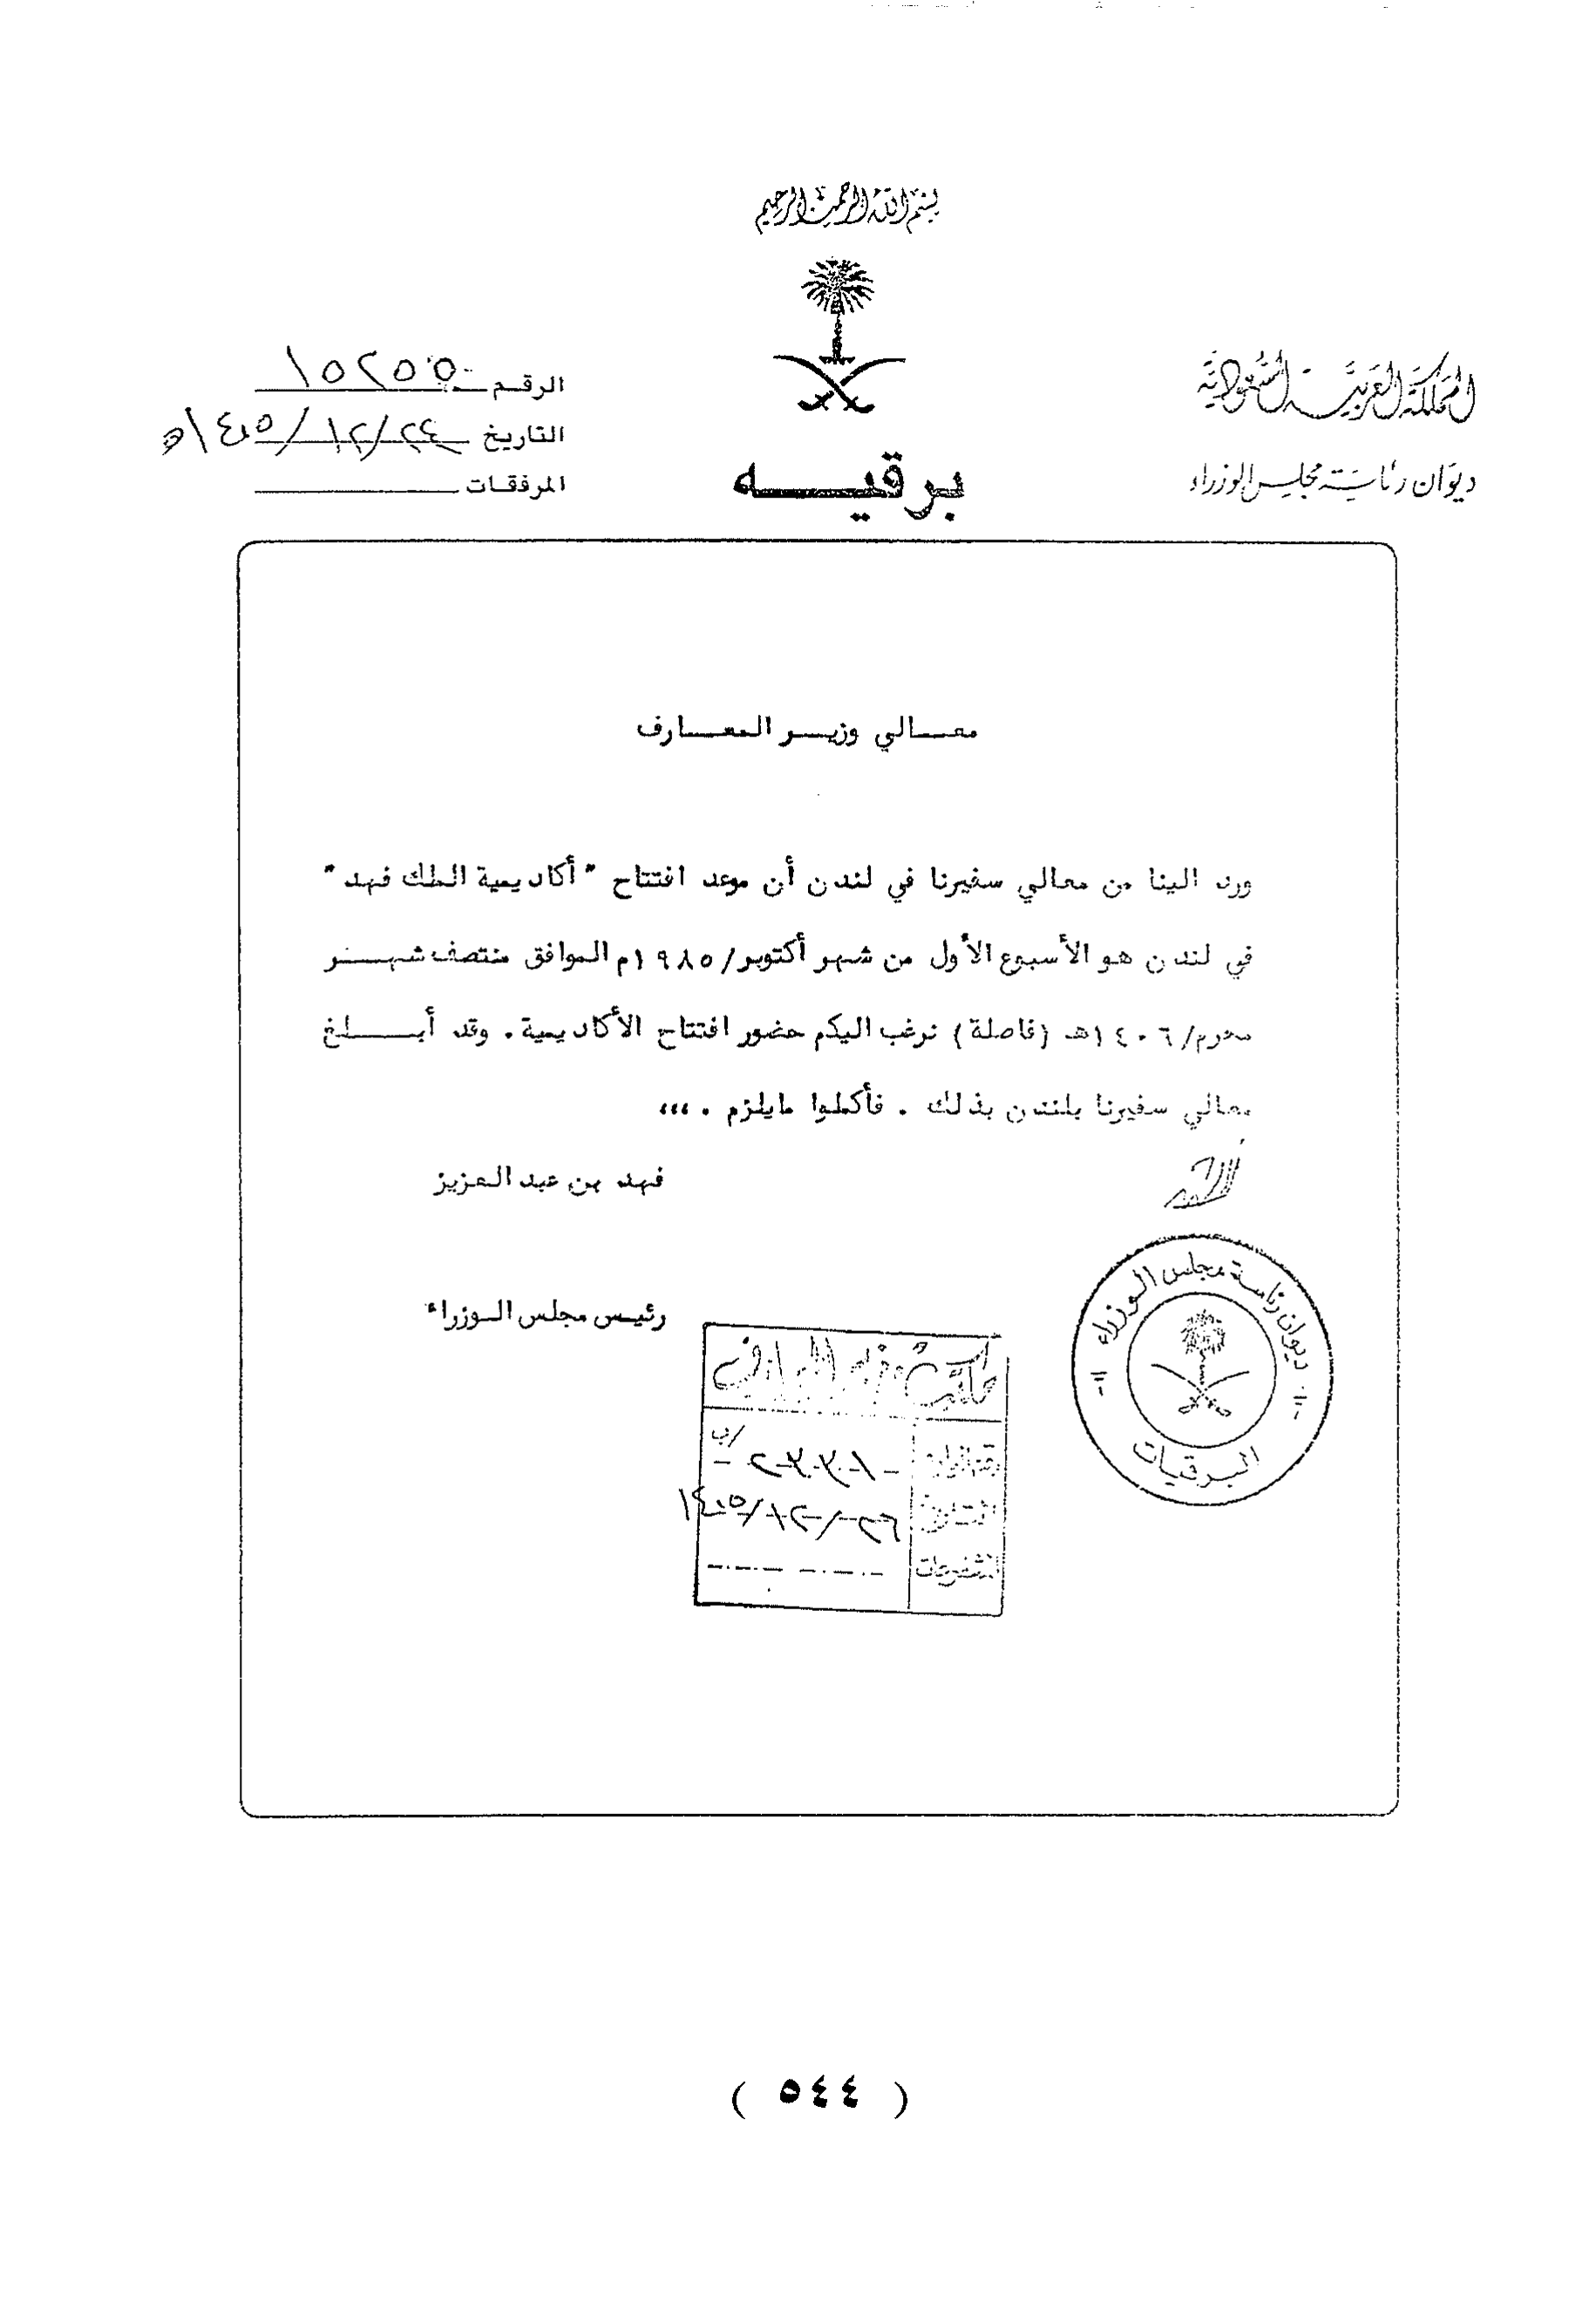 بسم الله الرحمن الرحيم
المملكة العربية السعودية
ديوان رئاسة مجلس الوزراء
برقيه
الرقم ١٥٢٥٥
التاريخ ٢٤/١٢/١٤٠٥ه
المرفقات
معالي وزير المعارف
ورد الينا من معالي سفيرنا في لندن أن موعد افتتاح "أكاديمية الملك فهد"
في لندن هو الأسبوع الأول من شهر أكتوبر/١٩٨٥م الموافق منتصف شهر
محرم/١٤٠٦هـ (فاصلة) نرغب اليكم حضور افتتاح الأكاديمية. وقد أبلغ
معالي سفيرنا بلندن بذلك . فأكملوا مايلزم .،،،
فهد بن عبد العزيز
رئيس مجلس الوزراء
ديوان رئاسة مجلس الوزراء
البرقيات
مكتب وزير المعارف
التاريخ
المشفوعات
( ٥٤٤ )